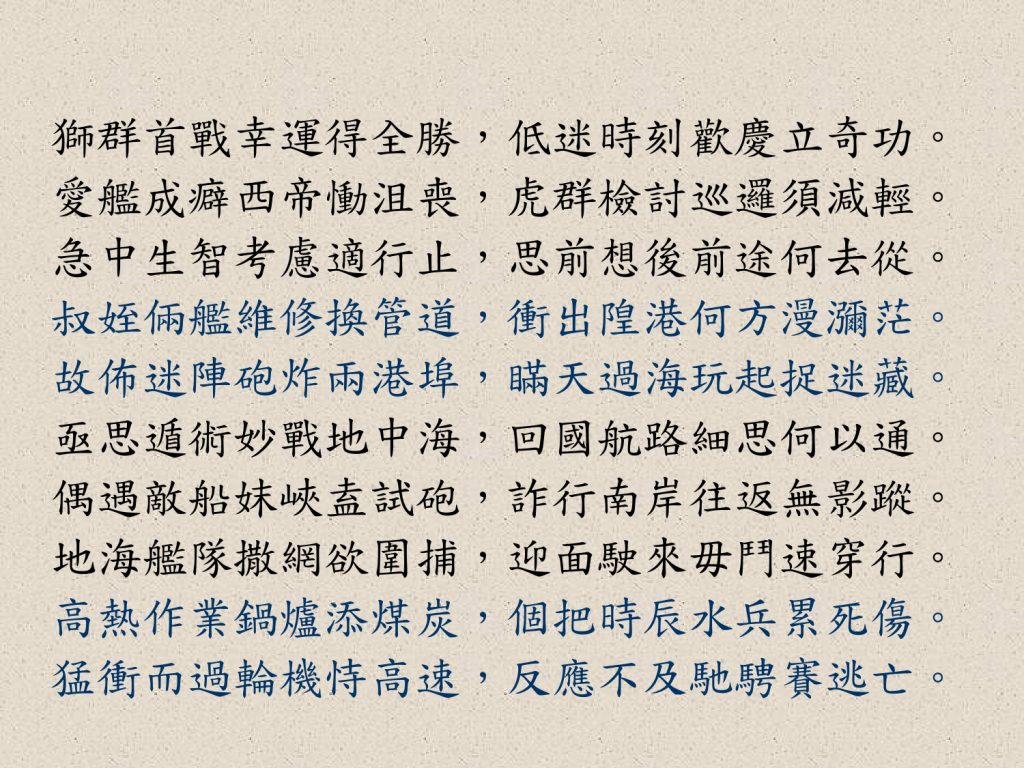 獅群首戰幸運得全勝，低迷時刻歡慶立奇功。
愛艦成癖西帝慟沮喪，虎群檢討巡邏須減輕。
急中生智考慮適行止，思前想後前途何去從。
叔姪倆艦維修換管道，衝出隍港何方漫瀰茫。
故佈迷陣砲炸兩港埠，瞞天過海玩起捉迷藏。
亟思遁術妙戰地中海，回國航路細思何以通。
偶遇敵船妹峽盍試砲，詐行南岸往返無影蹤。
地海艦隊撒網欲圍捕，迎面駛來毋鬥速穿行。
高熱作業鍋爐添煤炭，個把時辰水兵累死傷。
猛衝而過輪機恃高速，反應不及馳騁賽逃亡。